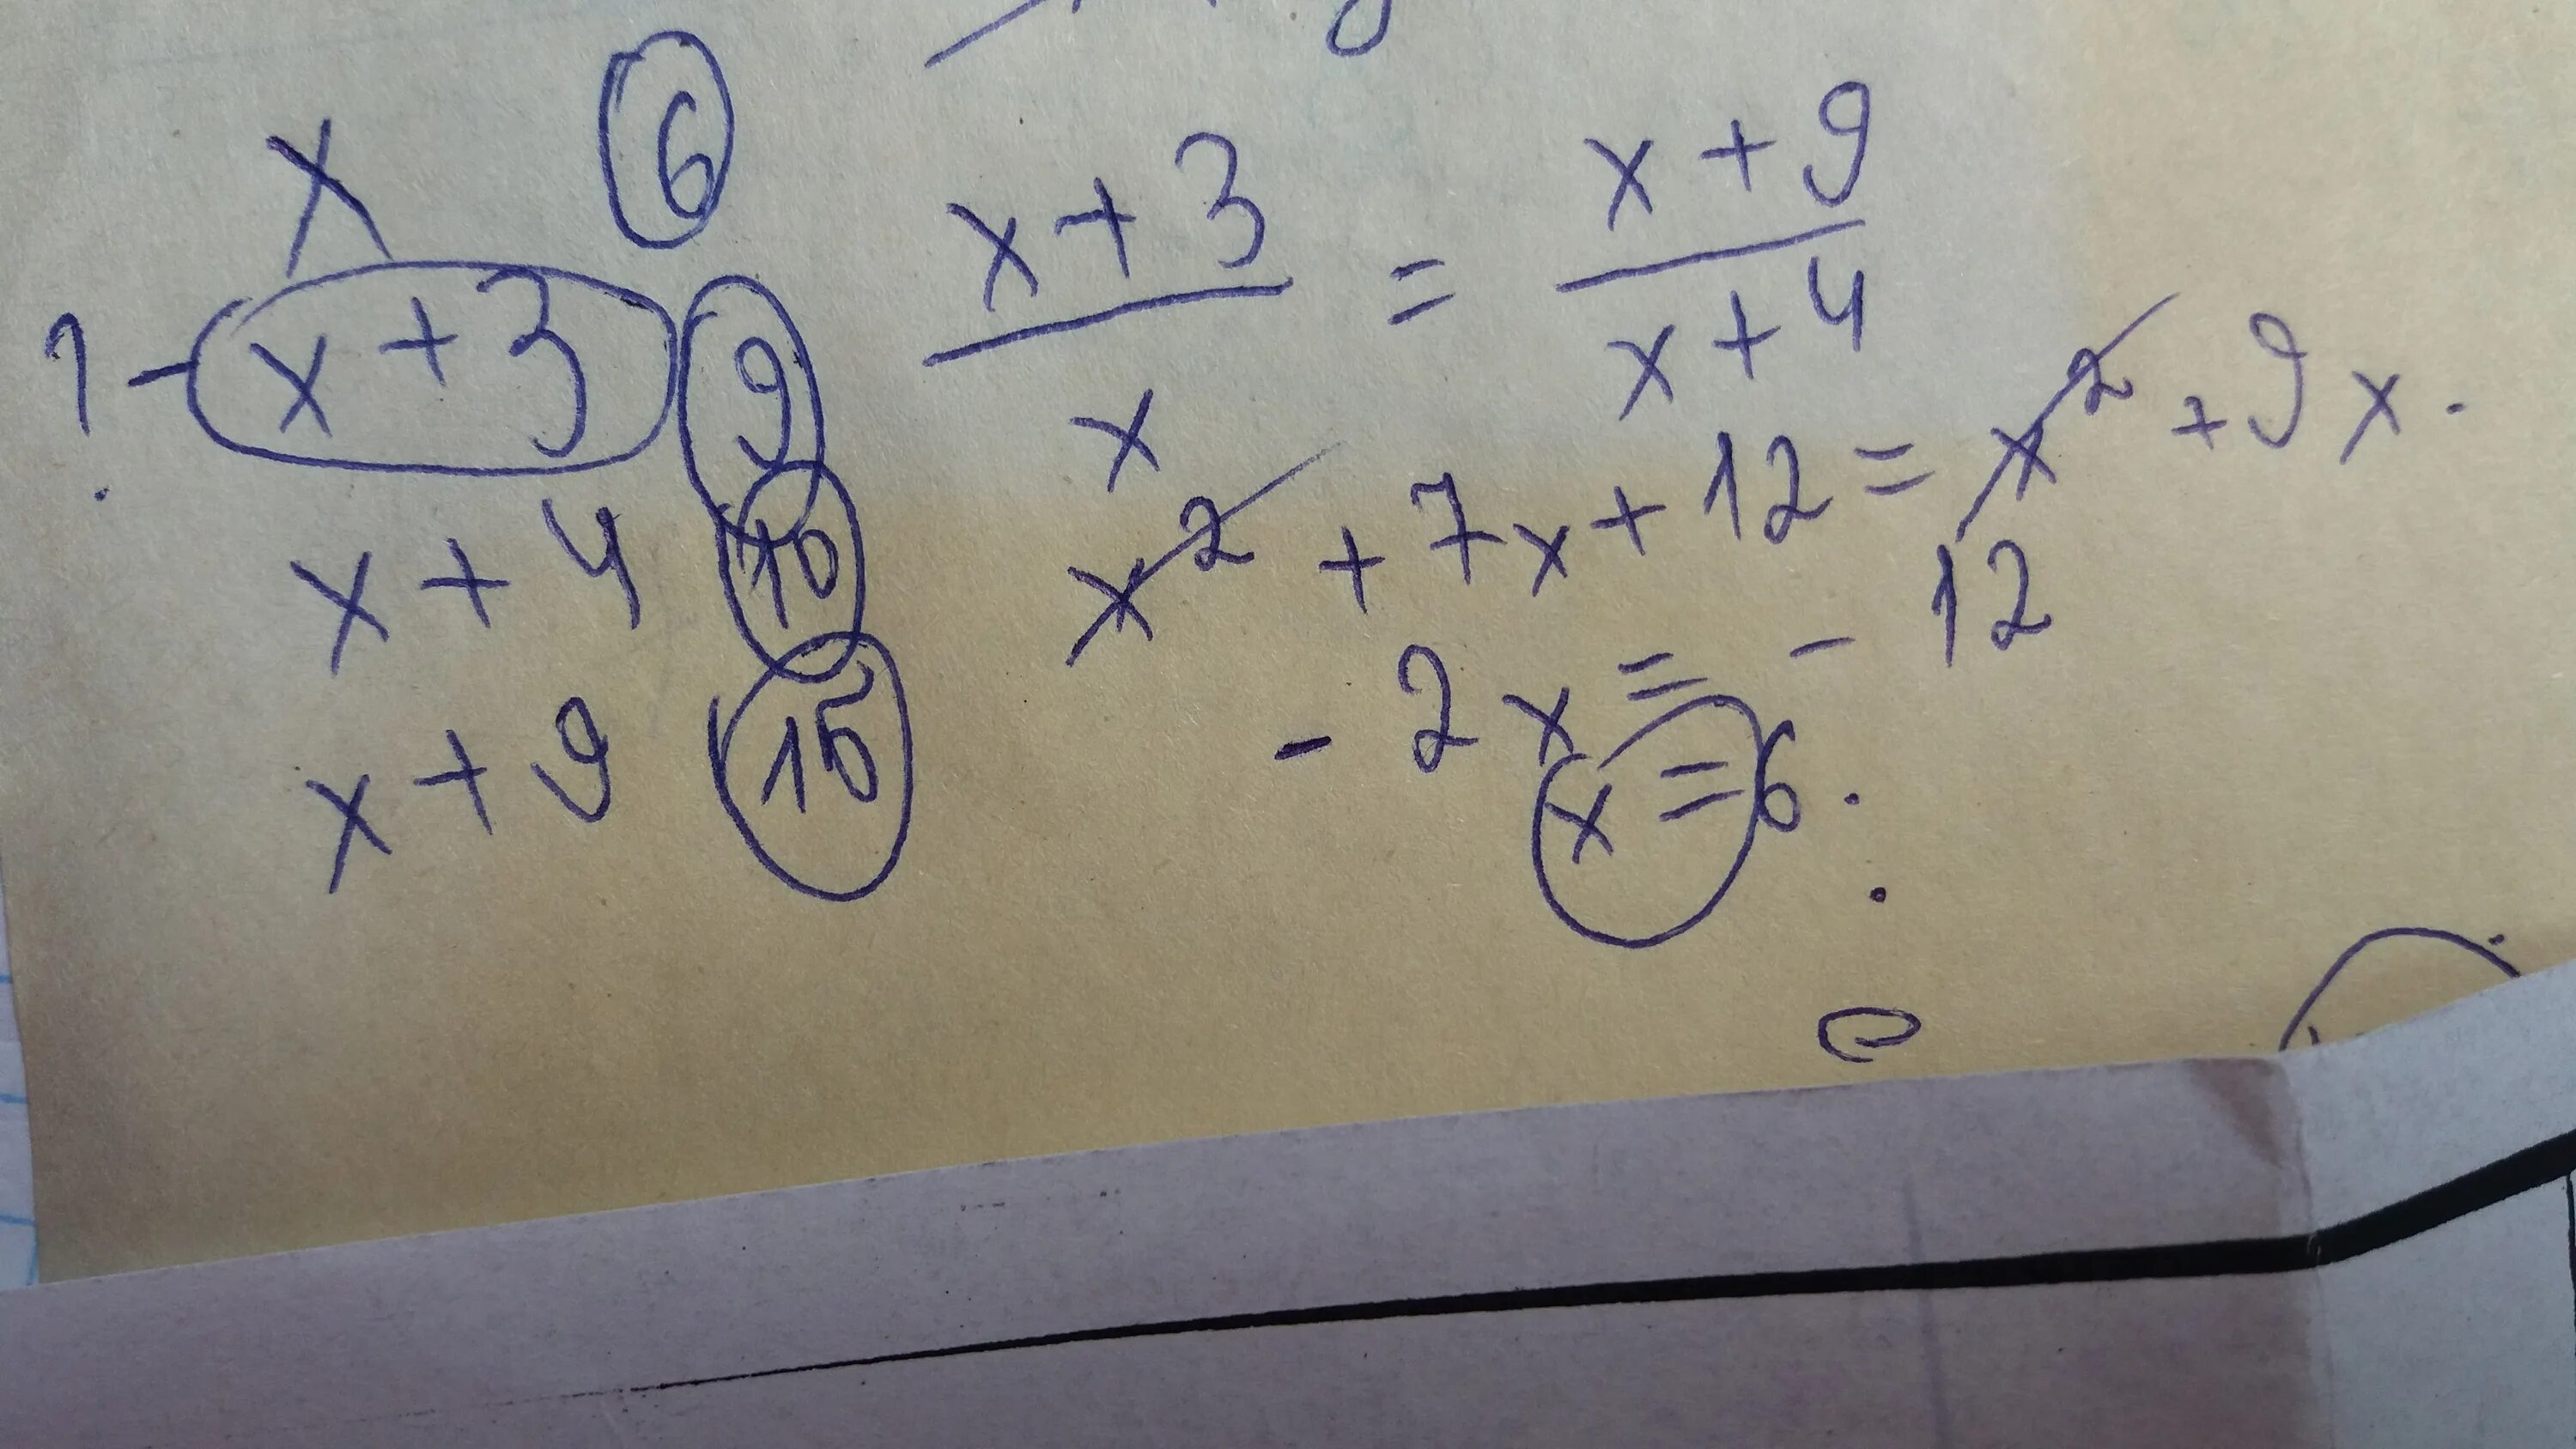 x 6
? - x + 3 9
x + 4 10
x + 9 15
x + 3 = x + 9
x x + 4
x² + 7x + 12 = x² + 9x.
- 2x = - 12
x = 6.